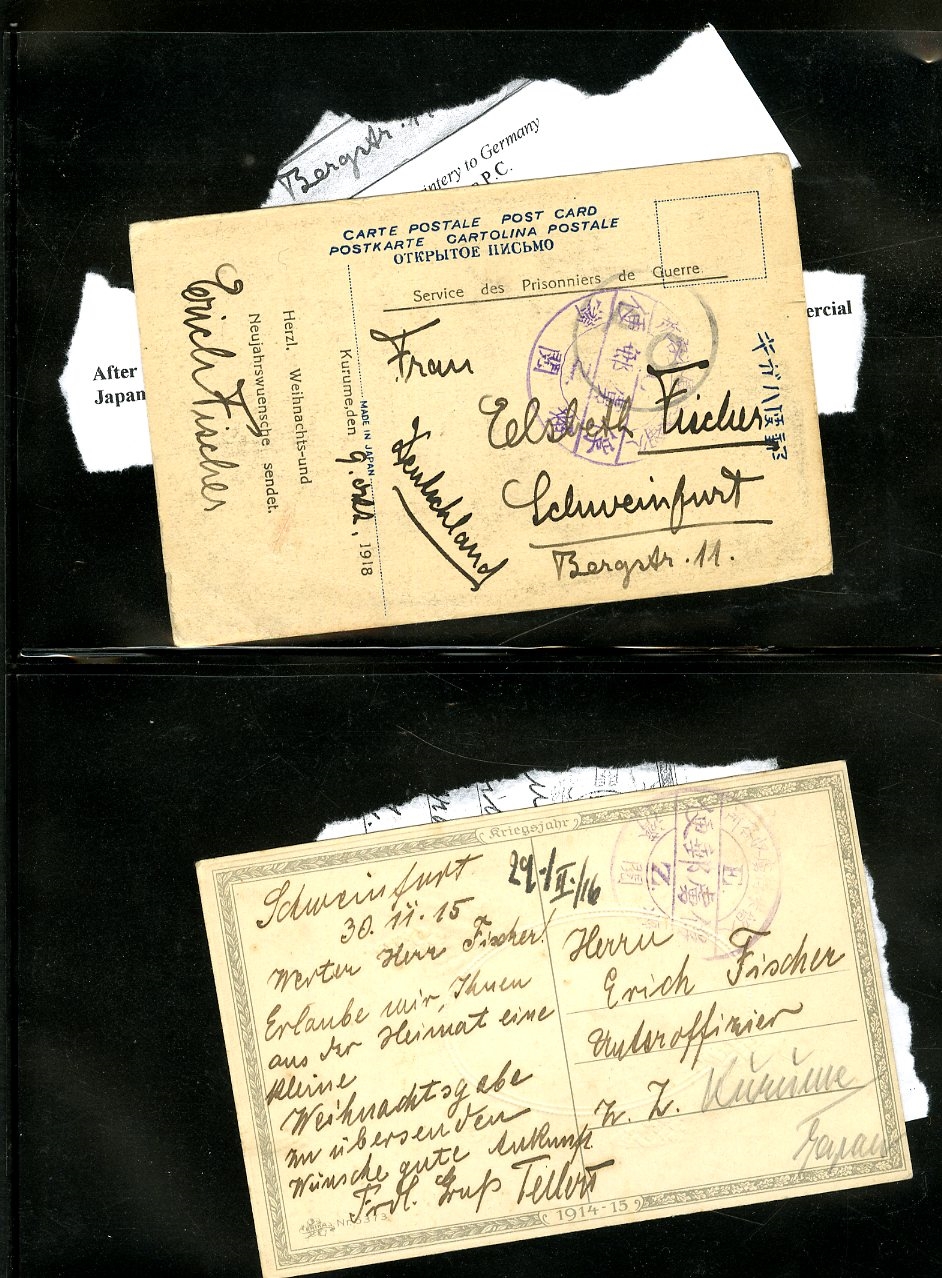 Bergstr.
to Germany
P.C.
ercial
After
Japan
CARTE POSTALE POST CARD
POSTKARTE CARTOLINA POSTALE
ОТКРЫТОЕ ПИСЬМО
Service des Prisonniers de Guerre
Frau
Elsbeth Fischer
Schweinfurt
Bergstr. 11.
Deutschland
MADE IN JAPAN
Kurume, den 9. 1918
Herzl. Weihnachts-und
Neujahrswuensche sendet.
Erich Fischer
Kriegsjahr
Schweinfurt
30.11.15
29./II./16
Werter Herr Fischer!
Erlaube mir, Ihnen
aus der Heimat eine
kleine
Weihnachtsgabe
zu übersenden
Wünsche gute Ankunft
Frdl. Gruß
Herrn
Erich Fischer
Unteroffizier
z. Z. Kurume
Japan
1914-15